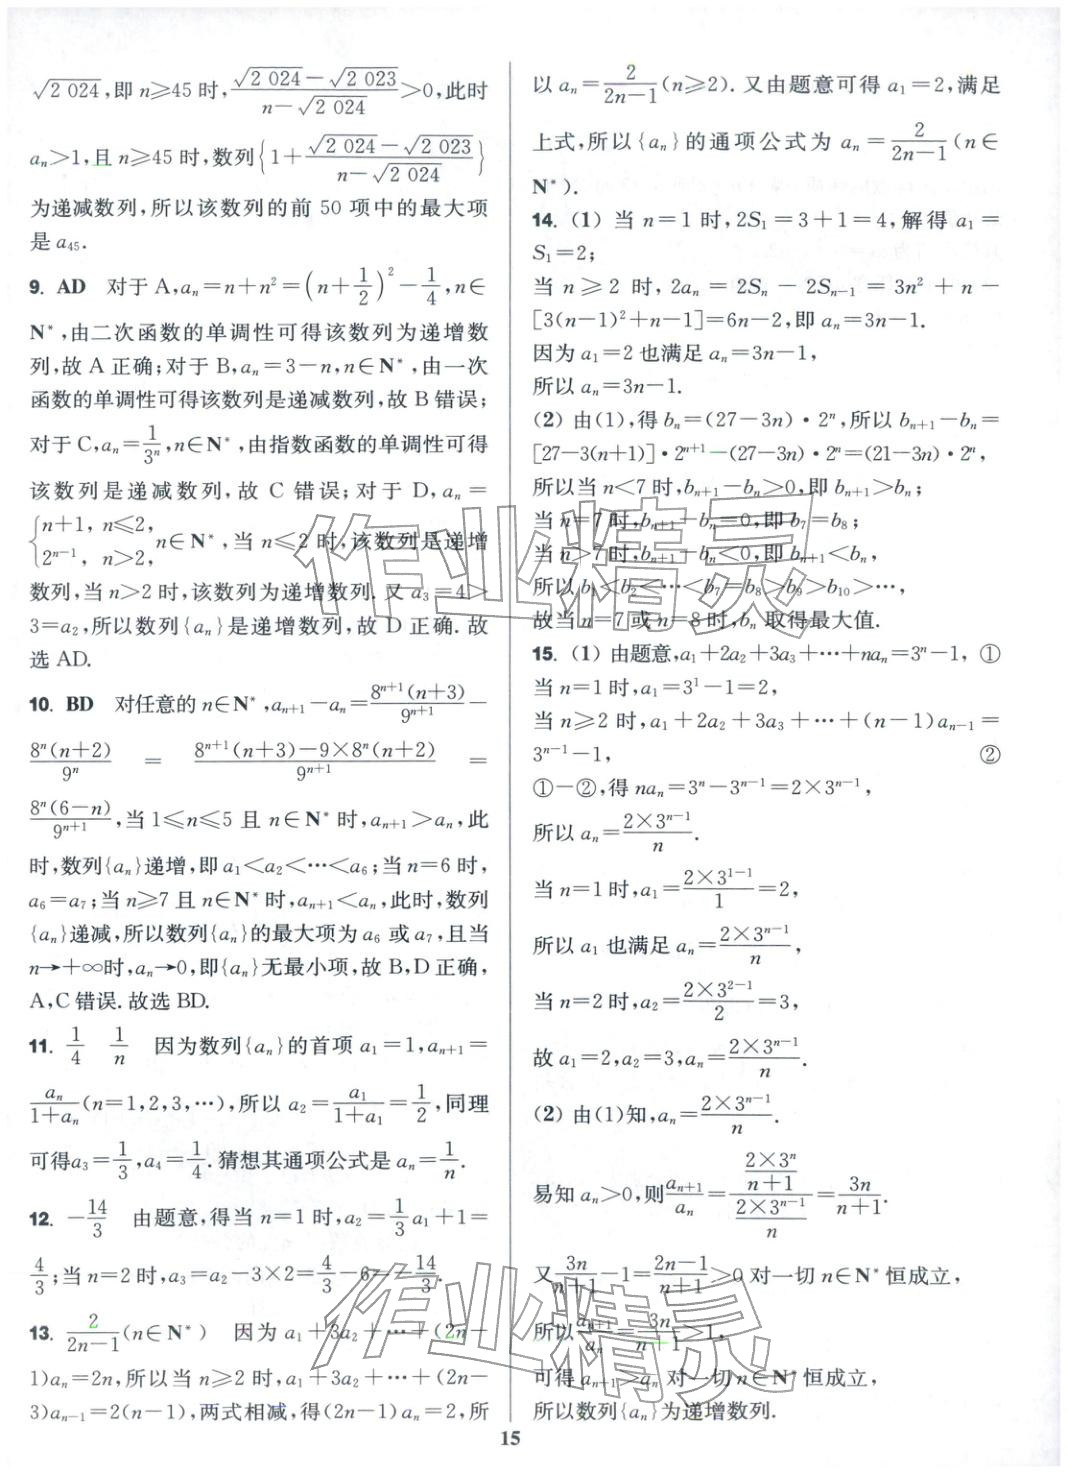 √2 024,即 n≥45 时,(√2 024−√2 023)/(n−√2 024)>0,此时
aₙ>1,且 n≥45 时,数列{1+(√2 024−√2 023)/(n−√2 024)}
为递减数列,所以该数列的前 50 项中的最大项
是 a₄₅.
9. AD 对于 A,aₙ=n+n²=(n+1/2)²−1/4,n∈
N*,由二次函数的单调性可得该数列为递增数
列,故 A 正确;对于 B,aₙ=3−n,n∈N*,由一次
函数的单调性可得该数列是递减数列,故 B 错误;
对于 C,aₙ=1/3ⁿ,n∈N*,由指数函数的单调性可得
该数列是递减数列,故 C 错误;对于 D,aₙ=
{n+1, n≤2,
2ⁿ⁻¹, n>2, n∈N*,当 n≤2 时,该数列是递增
数列,当 n>2 时,该数列为递增数列.又 a₃=4>
3=a₂,所以数列{aₙ}是递增数列,故 D 正确.故
选 AD.
10. BD 对任意的 n∈N*,aₙ₊₁−aₙ=8ⁿ⁺¹(n+3)/9ⁿ⁺¹−
8ⁿ(n+2)/9ⁿ = (8ⁿ⁺¹(n+3)−9×8ⁿ(n+2))/9ⁿ⁺¹ =
8ⁿ(6−n)/9ⁿ⁺¹,当 1≤n≤5 且 n∈N*时,aₙ₊₁>aₙ,此
时,数列{aₙ}递增,即 a₁<a₂<⋯<a₆;当 n=6 时,
a₆=a₇;当 n≥7 且 n∈N*时,aₙ₊₁<aₙ,此时,数列
{aₙ}递减,所以数列{aₙ}的最大项为 a₆ 或 a₇,且当
n→+∞时,aₙ→0,即{aₙ}无最小项,故 B,D 正确,
A,C 错误.故选 BD.
11. 1/4 1/n 因为数列{aₙ}的首项 a₁=1,aₙ₊₁=
aₙ/(1+aₙ)(n=1,2,3,⋯),所以 a₂=a₁/(1+a₁)=1/2,同理
可得a₃=1/3,a₄=1/4.猜想其通项公式是 aₙ=1/n.
12. −14/3 由题意,得当 n=1 时,a₂=1/3a₁+1=
4/3;当 n=2 时,a₃=a₂−3×2=4/3−6=−14/3.
13. 2/(2n−1)(n∈N*) 因为 a₁+3a₂+⋯+(2n−
1)aₙ=2n,所以当 n≥2 时,a₁+3a₂+⋯+(2n−
3)aₙ₋₁=2(n−1),两式相减,得(2n−1)aₙ=2,所
以 aₙ=2/(2n−1)(n≥2).又由题意可得 a₁=2,满足
上式,所以{aₙ}的通项公式为 aₙ=2/(2n−1)(n∈
N*).
14. (1) 当 n=1 时,2S₁=3+1=4,解得 a₁=
S₁=2;
当 n≥2 时,2aₙ=2Sₙ−2Sₙ₋₁=3n²+n−
[3(n−1)²+n−1]=6n−2,即 aₙ=3n−1.
因为 a₁=2 也满足 aₙ=3n−1,
所以 aₙ=3n−1.
(2) 由(1),得 bₙ=(27−3n)·2ⁿ,所以 bₙ₊₁−bₙ=
[27−3(n+1)]·2ⁿ⁺¹−(27−3n)·2ⁿ=(21−3n)·2ⁿ,
所以当 n<7 时,bₙ₊₁−bₙ>0,即 bₙ₊₁>bₙ;
当 n=7 时,bₙ₊₁−bₙ=0,即 b₇=b₈;
当 n>7 时,bₙ₊₁−bₙ<0,即 bₙ₊₁<bₙ,
所以 b₁<b₂<⋯<b₇=b₈>b₉>b₁₀>⋯,
故当 n=7 或 n=8 时,bₙ 取得最大值.
15. (1) 由题意,a₁+2a₂+3a₃+⋯+naₙ=3ⁿ−1, ①
当 n=1 时,a₁=3¹−1=2,
当 n≥2 时,a₁+2a₂+3a₃+⋯+(n−1)aₙ₋₁=
3ⁿ⁻¹−1, ②
①−②,得 naₙ=3ⁿ−3ⁿ⁻¹=2×3ⁿ⁻¹,
所以 aₙ=(2×3ⁿ⁻¹)/n.
当 n=1 时,a₁=(2×3¹⁻¹)/1=2,
所以 a₁ 也满足 aₙ=(2×3ⁿ⁻¹)/n,
当 n=2 时,a₂=(2×3²⁻¹)/2=3,
故 a₁=2,a₂=3,aₙ=(2×3ⁿ⁻¹)/n.
(2) 由(1)知,aₙ=(2×3ⁿ⁻¹)/n.
易知 aₙ>0,则aₙ₊₁/aₙ=((2×3ⁿ)/(n+1))/((2×3ⁿ⁻¹)/n)=3n/(n+1).
又3n/(n+1)−1=(2n−1)/(n+1)>0 对一切 n∈N*恒成立,
所以aₙ₊₁/aₙ=3n/(n+1)>1,
可得 aₙ₊₁>aₙ 对一切 n∈N*恒成立,
所以数列{aₙ}为递增数列.
15
作业精灵
作业精灵